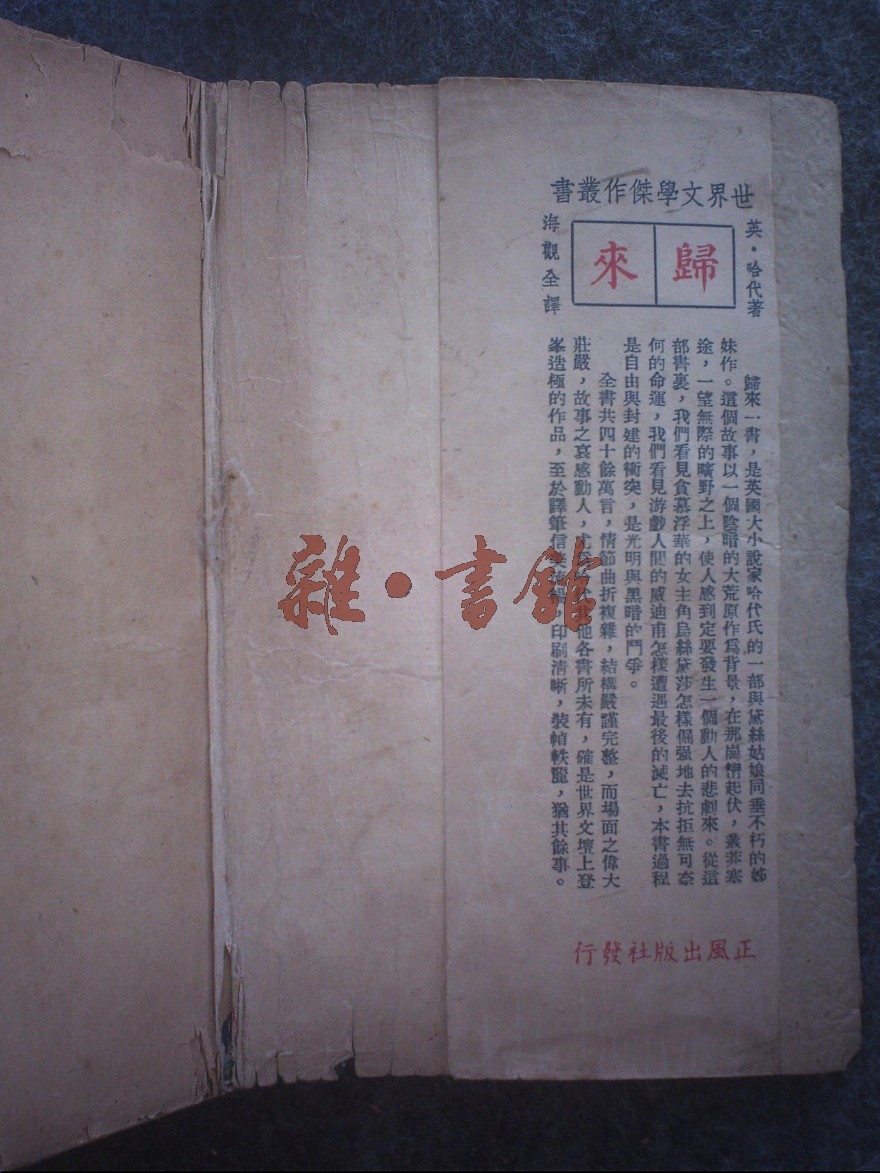 世界文學傑作叢書
英・哈代著
歸來
海觀全譯
歸來一書,是英國大小說家哈代氏的一部與黛絲姑娘同垂不朽的姊
妹作。這個故事以一個陰暗的大荒原作爲背景,在那崗巒起伏,叢莽塞
途,一望無際的曠野之上,使人感到定要發生一個動人的悲劇來。從這
部書裏,我們看見貪慕浮華的女主角烏絲黛莎怎樣倔强地去抗拒無可奈
何的命運,我們看見游戲人間的威迪甫怎樣遭遇最後的滅亡,本書過程
是自由與封建的衝突,是光明與黑暗的鬥爭。
全書共四十餘萬言,情節曲折複雜,結構嚴謹完整,而場面之偉大
莊嚴,故事之哀感動人,他各書所未有,確是世界文壇上登
峯造極的作品,至於譯筆信,印刷清晰,裝幀軼麗,猶其餘事。
正風出版社發行
雜・書館